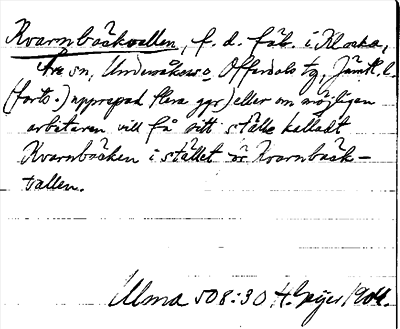 Kvarnbäckvallen, f. d. fäb. i Klocka,
Åre sn, Undersåkers o. Offerdals tg, Jämtl. l.
(forts.) upprepad flera ggr) eller om möjligen
arbetaren vill få sitt ställe kalladt
Kvarnbäcken i stället för Kvarnbäck-
vallen.
Ulma 508:30 H. Geijer 1904.